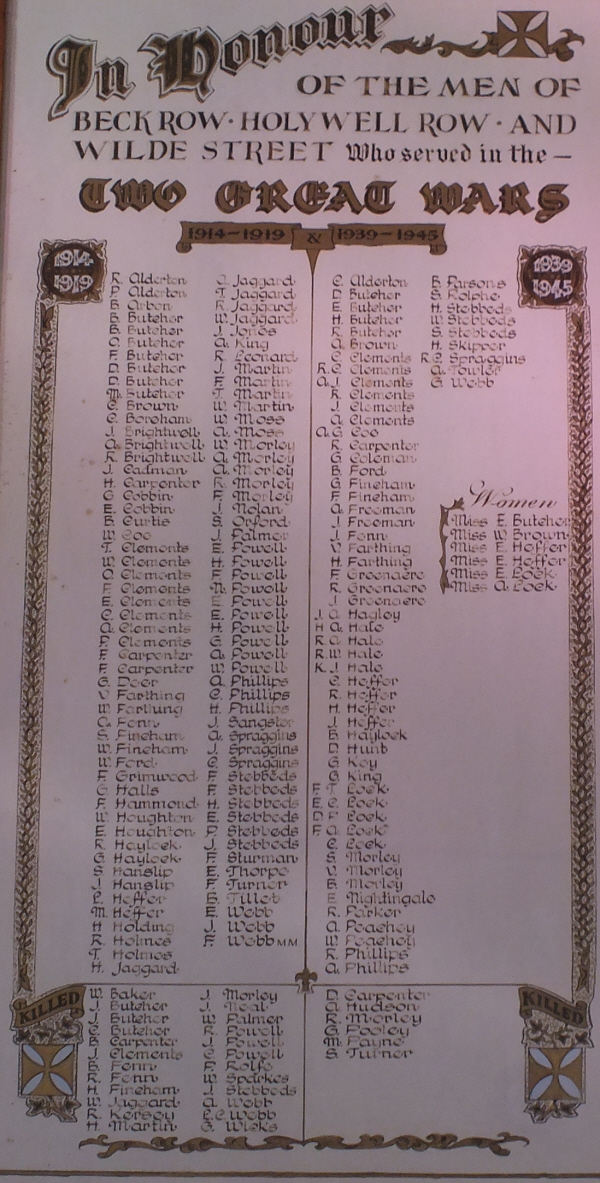 In Honour
OF THE MEN OF
BECK ROW · HOLYWELL ROW · AND
WILDE STREET Who served in the –
TWO GREAT WARS
1914–1919 & 1939–1945
1914
1919
R. Alderton
P. Alderton
B. Arbon
B. Butcher
B. Butcher
C. Butcher
F. Butcher
D. Butcher
D. Butcher
M. Butcher
C. Brown
C. Boreham
J. Brightwell
A. Brightwell
R. Brightwell
J. Cadman
H. Carpenter
G. Cobbin
E. Cobbin
B. Curtis
W. Coe
T. Clements
W. Clements
O. Clements
F. Clements
E. Clements
C. Clements
A. Clements
P. Clements
F. Carpenter
F. Carpenter
G. Deer
V. Farthing
W. Farthing
C. Fenn
S. Fineham
W. Fineham
W. Ford
F. Grimwood
G. Halls
F. Hammond
W. Houghton
E. Houghton
R. Haylock
G. Haylock
S. Hanslip
J. Hanslip
P. Heffer
M. Heffer
H. Holding
R. Holmes
T. Holmes
H. Jaggard
J. Jaggard
T. Jaggard
R. Jaggard
W. Jaggard
J. Jones
A. King
R. Leonard
J. Martin
F. Martin
T. Martin
W. Martin
W. Moss
A. Moss
W. Morley
A. Morley
A. Morley
R. Morley
F. Morley
J. Nolan
S. Orford
J. Palmer
E. Powell
H. Powell
F. Powell
N. Powell
E. Powell
E. Powell
H. Powell
G. Powell
A. Powell
W. Powell
A. Phillips
C. Phillips
H. Phillips
J. Sangster
A. Spraggins
J. Spraggins
C. Spraggins
F. Stebbeds
F. Stebbeds
H. Stebbeds
E. Stebbeds
P. Stebbeds
J. Stebbeds
F. Sturman
E. Thorpe
F. Turner
B. Tillet
E. Webb
J. Webb
F. Webb MM
1939
1945
C. Alderton
D. Butcher
E. Butcher
H. Butcher
R. Butcher
A. Brown
C. Clements
R.C. Clements
A.J. Clements
R. Clements
J. Clements
A. Clements
A.G. Coo
R. Carpenter
G. Coleman
B. Ford
G. Fineham
F. Fineham
A. Freeman
J. Freeman
J. Fenn
V. Farthing
H. Farthing
F. Greenacre
R. Greenacre
J. Greenacre
J.G. Hagley
H.A. Hale
R.G. Hale
R.W. Hale
K.J. Hale
C. Heffer
R. Heffer
H. Heffer
J. Heffer
B. Haylock
D. Hunt
G. Key
G. King
F.T. Lock
E.C. Lock
D.F. Lock
F.A. Lock
C. Lock
S. Morley
V. Morley
B. Morley
E. Nightingale
R. Parker
A. Peachey
W. Peachey
R. Phillips
A. Phillips
B. Parsons
S. Rolphe
H. Stebbeds
W. Stebbeds
S. Stebbeds
H. Skipper
R.C. Spraggins
A. Fowler
G. Webb
Women
Miss E. Butcher
Miss W. Brown
Miss E. Heffer
Miss E. Heffer
Miss E. Lock
Miss A. Lock
KILLED
W. Baker
J. Butcher
J. Butcher
C. Butcher
B. Carpenter
J. Clements
B. Fenn
R. Fenn
H. Fineham
W. Jaggard
R. Kersey
H. Martin
J. Morley
J. Neal
W. Palmer
R. Powell
J. Powell
C. Powell
F. Rolfe
W. Sparkes
J. Stebbeds
A. Webb
E.C. Webb
G. Wicks
D. Carpenter
A. Hudson
R. Morley
G. Pooley
M. Payne
S. Turner
KILLED